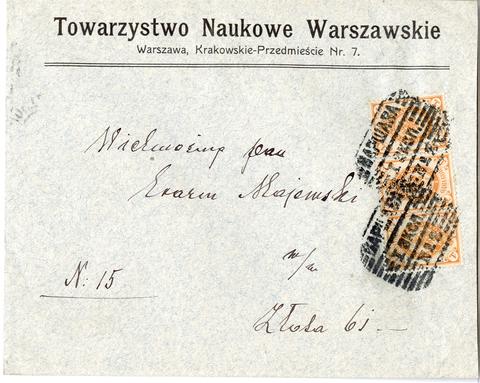 Towarzystwo Naukowe Warszawskie
Warszawa, Krakowskie-Przedmieście Nr. 7.
Wielmożny pan
Erazm Majewski
w/m
N: 15
Złota 61. —